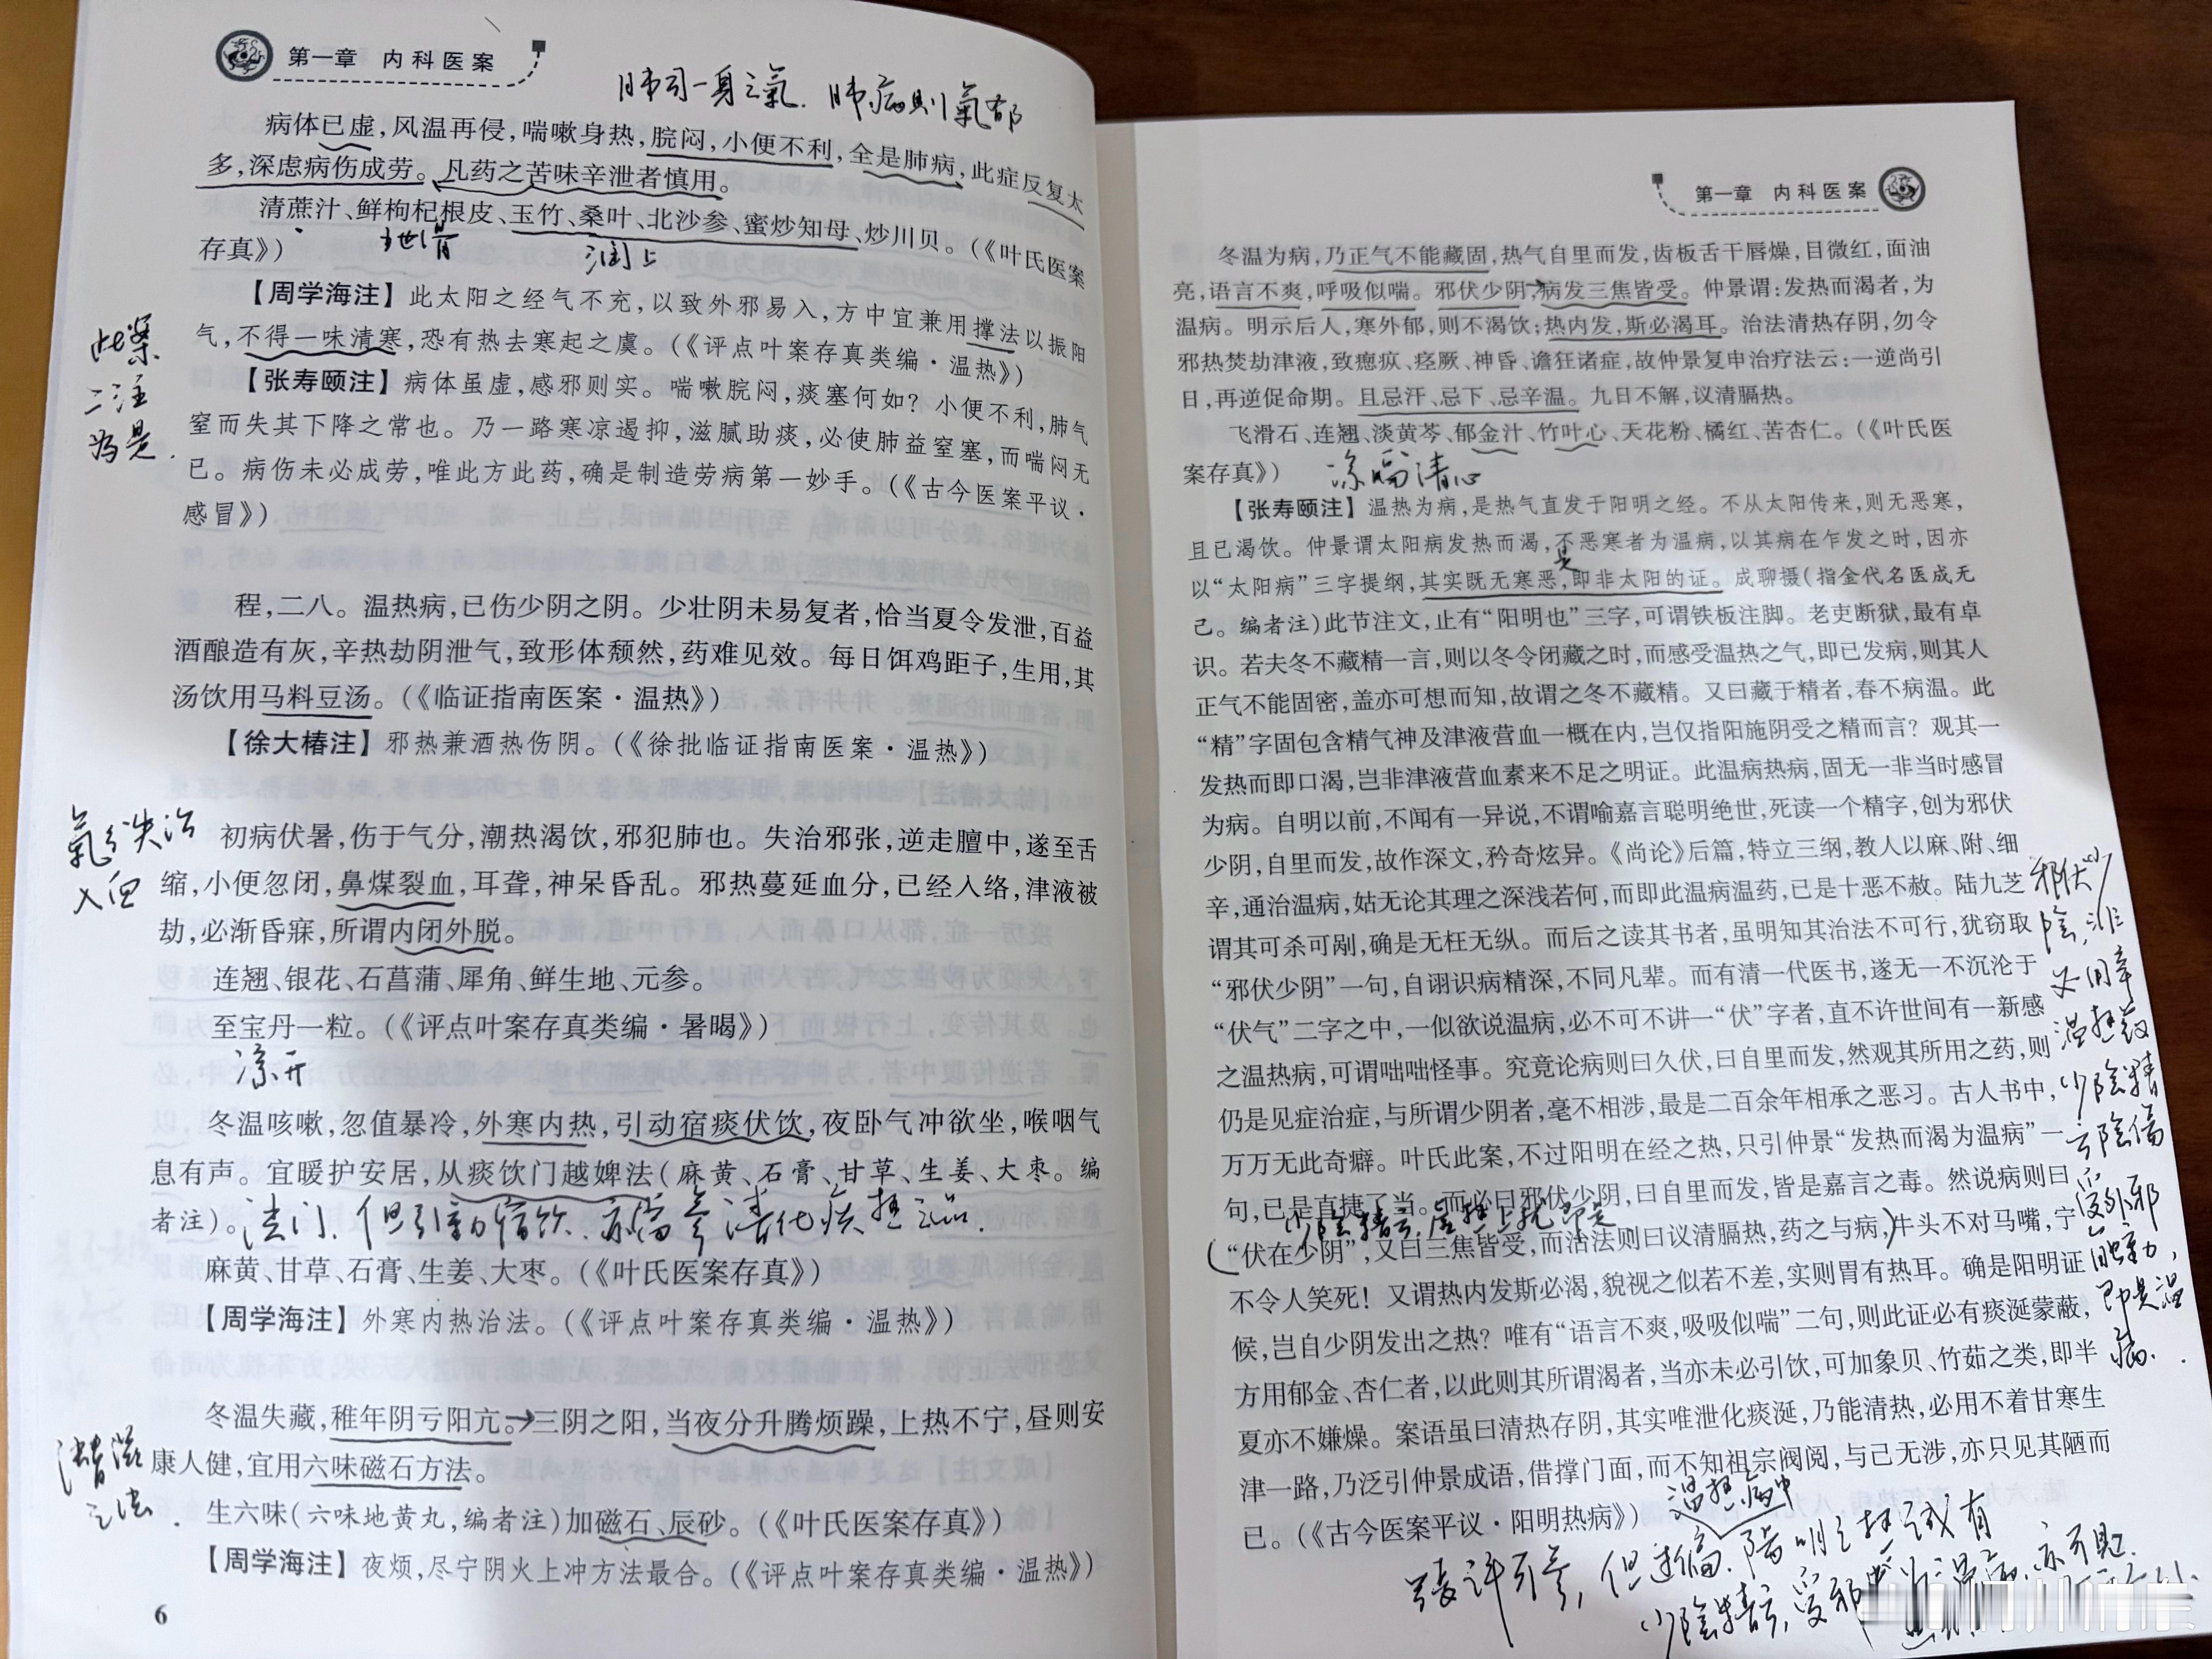 第一章 内科医案
肺司一身之氣.肺病则氣郁
病体已虚,风温再侵,喘嗽身热,脘闷,小便不利,全是肺病,此症反复太
多,深虑病伤成劳。凡药之苦味辛泄者慎用。
清蔗汁、鲜枸杞根皮、玉竹、桑叶、北沙参、蜜炒知母、炒川贝。(《叶氏医案
地骨
润上
存真》)
【周学海注】此太阳之经气不充,以致外邪易入,方中宜兼用撑法以振阳
气,不得一味清寒,恐有热去寒起之虞。(《评点叶案存真类编·温热》)
此案
二注
为是.
【张寿颐注】病体虽虚,感邪则实。喘嗽脘闷,痰塞何如?小便不利,肺气
窒而失其下降之常也。乃一路寒凉遏抑,滋腻助痰,必使肺益窒塞,而喘闷无
已。病伤未必成劳,唯此方此药,确是制造劳病第一妙手。(《古今医案平议·
感冒》)
程,二八。温热病,已伤少阴之阴。少壮阴未易复者,恰当夏令发泄,百益
酒酿造有灰,辛热劫阴泄气,致形体颓然,药难见效。每日饵鸡距子,生用,其
汤饮用马料豆汤。(《临证指南医案·温热》)
【徐大椿注】邪热兼酒热伤阴。(《徐批临证指南医案·温热》)
氣分失治
入血
初病伏暑,伤于气分,潮热渴饮,邪犯肺也。失治邪张,逆走膻中,遂至舌
缩,小便忽闭,鼻煤裂血,耳聋,神呆昏乱。邪热蔓延血分,已经入络,津液被
劫,必渐昏寐,所谓内闭外脱。
连翘、银花、石菖蒲、犀角、鲜生地、元参。
至宝丹一粒。(《评点叶案存真类编·暑暍》)
凉开
冬温咳嗽,忽值暴冷,外寒内热,引动宿痰伏饮,夜卧气冲欲坐,喉咽气
息有声。宜暖护安居,从痰饮门越婢法(麻黄、石膏、甘草、生姜、大枣。编
者注)。
法门.但引動宿饮.亦需参清化痰热之品.
麻黄、甘草、石膏、生姜、大枣。(《叶氏医案存真》)
【周学海注】外寒内热治法。(《评点叶案存真类编·温热》)
冬温失藏,稚年阴亏阳亢。三阴之阳,当夜分升腾烦躁,上热不宁,昼则安
康人健,宜用六味磁石方法。
之法.
生六味(六味地黄丸,编者注)加磁石、辰砂。(《叶氏医案存真》)
【周学海注】夜烦,尽宁阴火上冲方法最合。(《评点叶案存真类编·温热》)
6
第一章 内科医案
冬温为病,乃正气不能藏固,热气自里而发,齿板舌干唇燥,目微红,面油
亮,语言不爽,呼吸似喘。邪伏少阴,病发三焦皆受。仲景谓:发热而渴者,为
温病。明示后人,寒外郁,则不渴饮;热内发,斯必渴耳。治法清热存阴,勿令
邪热焚劫津液,致瘛疭、痉厥、神昏、谵狂诸症,故仲景复申治疗法云:一逆尚引
日,再逆促命期。且忌汗、忌下、忌辛温。九日不解,议清膈热。
飞滑石、连翘、淡黄芩、郁金汁、竹叶心、天花粉、橘红、苦杏仁。(《叶氏医
案存真》)
凉膈清心
【张寿颐注】温热为病,是热气直发于阳明之经。不从太阳传来,则无恶寒,
且已渴饮。仲景谓太阳病发热而渴,不恶寒者为温病,以其病在乍发之时,因亦
是
以“太阳病”三字提纲,其实既无寒恶,即非太阳的证。成聊摄(指金代名医成无
己。编者注)此节注文,止有“阳明也”三字,可谓铁板注脚。老吏断狱,最有卓
识。若夫冬不藏精一言,则以冬令闭藏之时,而感受温热之气,即已发病,则其人
正气不能固密,盖亦可想而知,故谓之冬不藏精。又曰藏于精者,春不病温。此
“精”字固包含精气神及津液营血一概在内,岂仅指阳施阴受之精而言?观其一
发热而即口渴,岂非津液营血素来不足之明证。此温病热病,固无一非当时感冒
为病。自明以前,不闻有一异说,不谓喻嘉言聪明绝世,死读一个精字,创为邪伏
少阴,自里而发,故作深文,矜奇炫异。《尚论》后篇,特立三纲,教人以麻、附、细
辛,通治温病,姑无论其理之深浅若何,而即此温病温药,已是十恶不赦。陆九芝
谓其可杀可剐,确是无枉无纵。而后之读其书者,虽明知其治法不可行,犹窃取
“邪伏少阴”一句,自诩识病精深,不同凡辈。而有清一代医书,遂无一不沉沦于
“伏气”二字之中,一似欲说温病,必不可不讲一“伏”字者,直不许世间有一新感
之温热病,可谓咄咄怪事。究竟论病则曰久伏,曰自里而发,然观其所用之药,则
仍是见症治症,与所谓少阴者,毫不相涉,最是二百余年相承之恶习。古人书中,
万万无此奇癖。叶氏此案,不过阳明在经之热,只引仲景“发热而渴为温病”一
句,已是直捷了当。而必曰邪伏少阴,曰自里而发,皆是嘉言之毒。然说病则曰
“伏在少阴”,又曰三焦皆受,而治法则曰议清膈热,药之与病,牛头不对马嘴,宁
不令人笑死!又谓热内发斯必渴,貌视之似若不差,实则胃有热耳。确是阳明证
候,岂自少阴发出之热?唯有“语言不爽,吸吸似喘”二句,则此证必有痰涎蒙蔽,
方用郁金、杏仁者,以此则其所谓渴者,当亦未必引饮,可加象贝、竹茹之类,即半
夏亦不嫌燥。案语虽曰清热存阴,其实唯泄化痰涎,乃能清热,必用不着甘寒生
津一路,乃泛引仲景成语,借撑门面,而不知祖宗阀阅,与己无涉,亦只见其陋而
已。(《古今医案平议·阳明热病》)
邪伏少
陰,非
必用辛
温热药
少陰精
亏陰傷
而受外邪
触動,
即是温
病.
温热病中
張评可参,但过偏.陽明之热诚有
少陰精亏,受邪